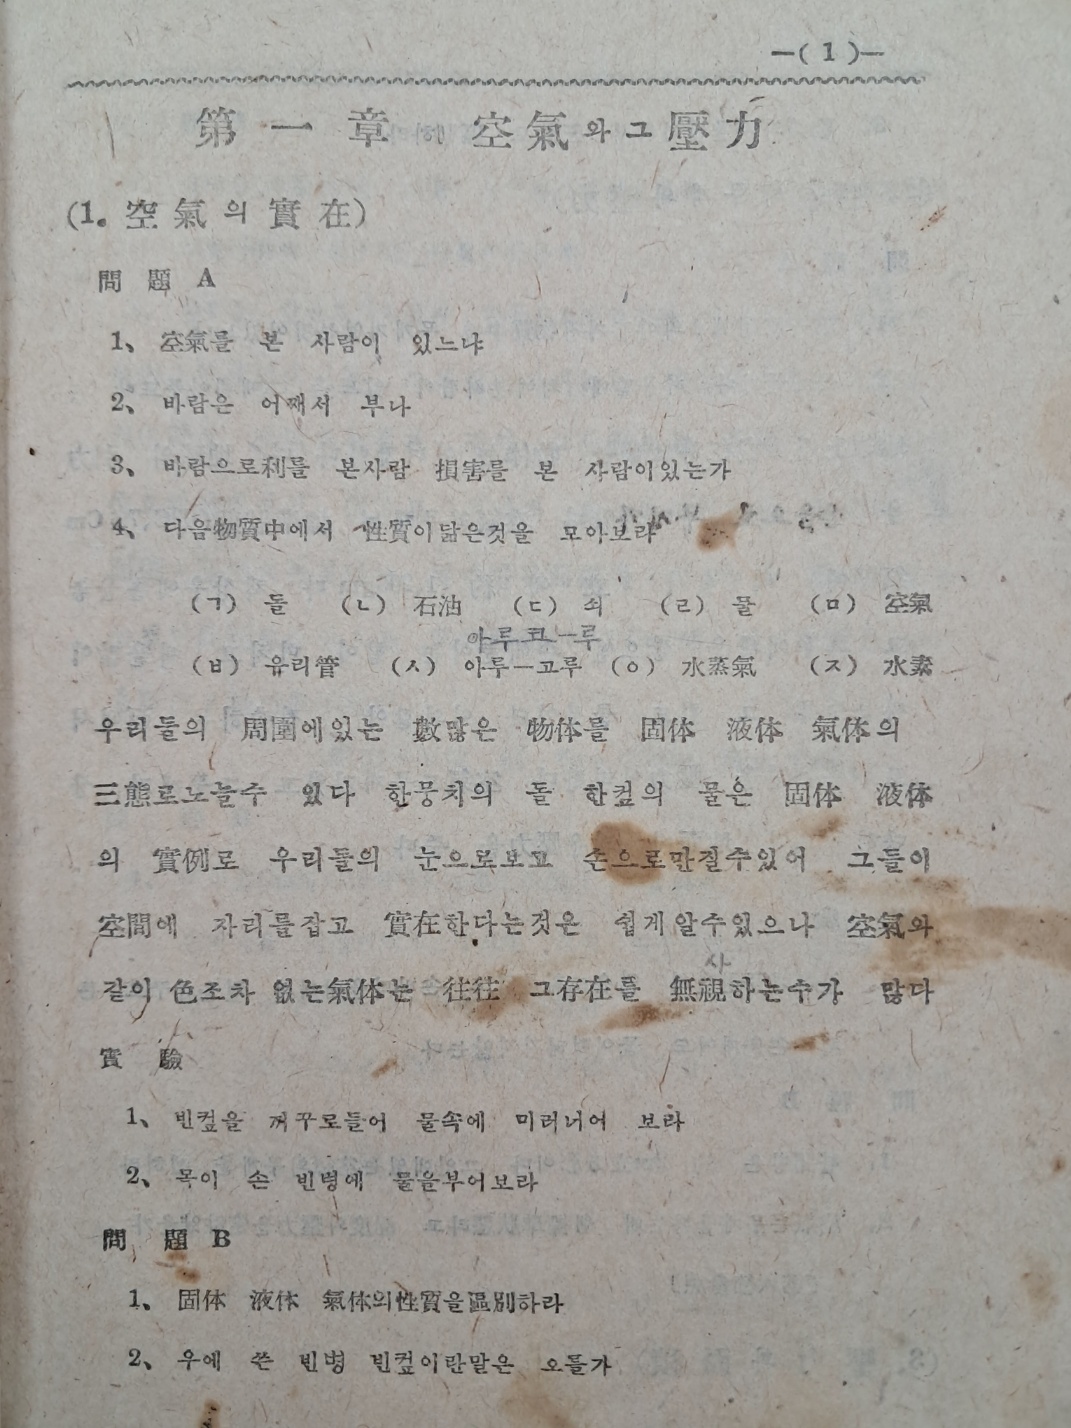 —( 1 )—
第一章 空氣와 그 壓力
(1. 空氣의 實在)
問題 A
1、 空氣를 본 사람이 있느냐
2、 바람은 어째서 부나
3、 바람으로利를 본사람 損害를 본 사람이있는가
4、 다음物質中에서 性質이닮은것을 모아보라
(ㄱ) 돌 (ㄴ) 石油 (ㄷ) 쇠 (ㄹ) 물 (ㅁ) 空氣
아루코ー루
(ㅂ) 유리管 (ㅅ) 아루ー고루 (ㅇ) 水蒸氣 (ㅈ) 水素
우리들의 周圍에있는 數많은 物体를 固体 液体 氣体의
三態로노늘수 있다 한뭉치의 돌 한컵의 물은 固体 液体
의 實例로 우리들의 눈으로보고 손으로만질수있어 그들이
空間에 자리를잡고 實在한다는것은 쉽게알수있으나 空氣와
사
같이 色조차 없는氣体는 往往 그存在를 無視하는수가 많다
實驗
1、 빈컵을 꺼꾸로들어 물속에 미러너어 보라
2、 목이 손 빈병에 물을부어보라
問題 B
1、 固体 液体 氣体의性質을區別하라
2、 우에 쓴 빈병 빈컵이란말은 오를가